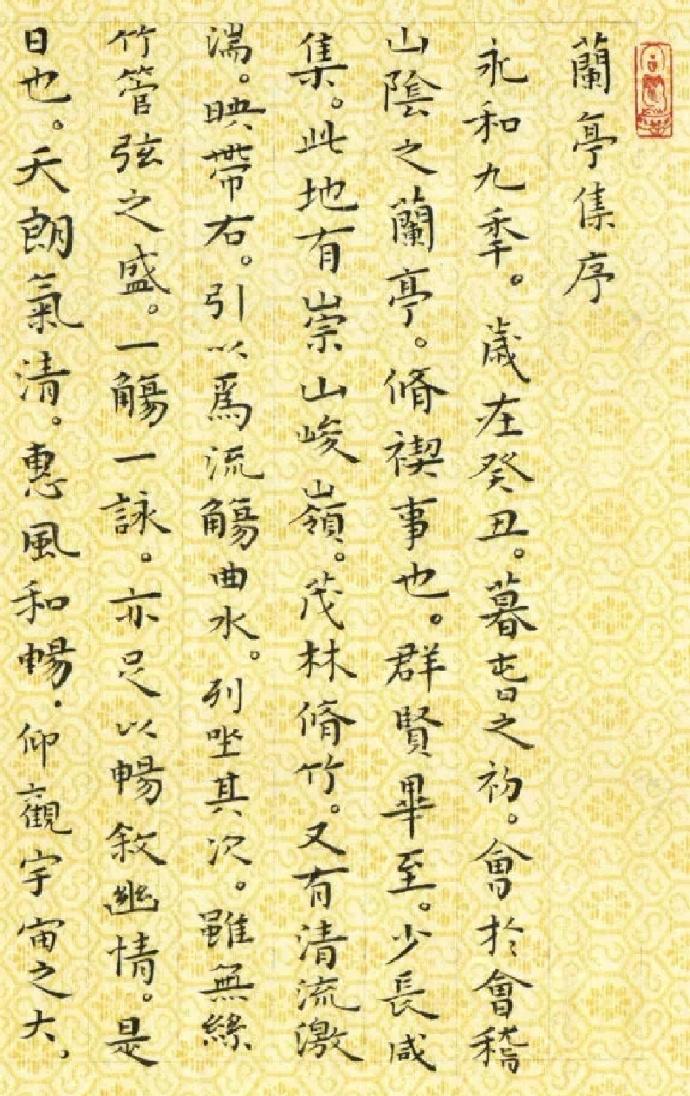 蘭亭集序
永和九秊。歲在癸丑。暮旾之初。會於會稽
山陰之蘭亭。脩禊事也。群賢畢至。少長咸
集。此地有崇山峻嶺。茂林脩竹。又有清流激
湍。映帶右。引以爲流觴曲水。列坐其次。雖無絲
竹管弦之盛。一觴一詠。亦足以暢敘幽情。是
日也。天朗氣清。惠風和暢.仰觀宇宙之大，